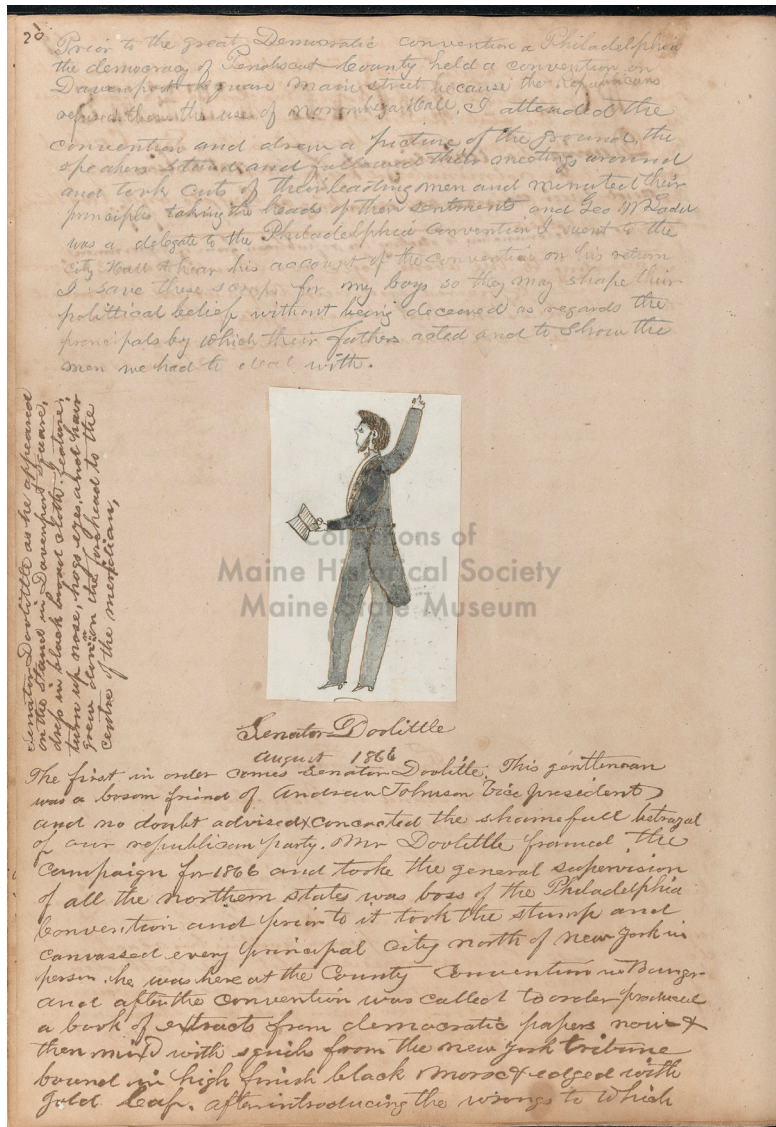 20
Prior to the great Democratic convention a Philadelphia
the democracy of Penobscot County held a convention on
Davenport Square Main street because the Republicans
refused them the use of Norombega Hall. I attended the
convention and drew a picture of the ground, the
speakers stand and followed their meetings around
and took cuts of their leading men and minuted their
principles taking the heads of their sentiments and Geo W Ladd
was a delegate to the Philadelphia Convention I went to the
City Hall to hear his account of the Convention on his return
I save these scraps for my boys so they may shape their
polittical belief without being deceived as regards the
principals by which their fathers acted and to show the
men we had to deal with.
Senator Doolittle as he appeared
on the stand in Davenport Square,
dress in black broad cloth. feature;
turn up nose, hogs eyes, and hair
grew down on the forehead to the
centre of the meridian,
Collections of
Maine Historical Society
Maine State Museum
Senator Doolittle
August 1866
The first in order comes Senator Doolittle. This gentleman
was a bosom friend of Andrew Johnson Vice president)
and no doubt advised & concocted the shamefull betrayal
of our republican party. Mr Doolittle framed the
Campaign for 1866 and tooke the general supervision
of all the northern states was boss of the Philadelphia
Convention and prior to it took the stump and
canvassed every principal City north of New York in
person. he was here at the County Convention in Bangor
and after the convention was called to order produced
a book of extracts from democratic papers now &
then mixd with squibs from the New York tribune
bound in high finish black edged with
gold leaf. after introducing the wrongs to which